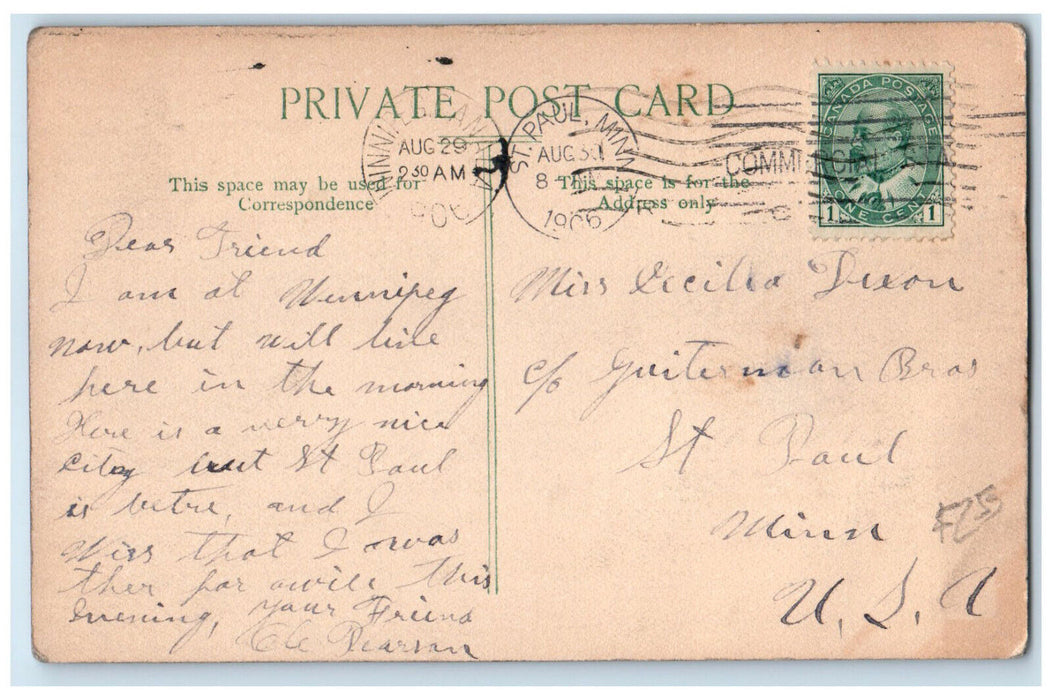 PRIVATE POST CARD
This space may be used for
Correspondence
This space is for the
Address only
AUG 29
2 30 AM
ST. PAUL, MINN
AUG 30
8-
1906
COMMERCIAL
CANADA POSTAGE
1 ONE CENT 1
Dear Friend
I am at Winnipeg
now, but will live
here in the morning
Here is a verry nice
City but St Paul
is betre, and I
Wiss that I was
ther for awile this
evening, your Friend
Ole Pearson
Miss Cecilia Dixon
c/o Guiterman Bros
St Paul
Minn
U. S. A
F25